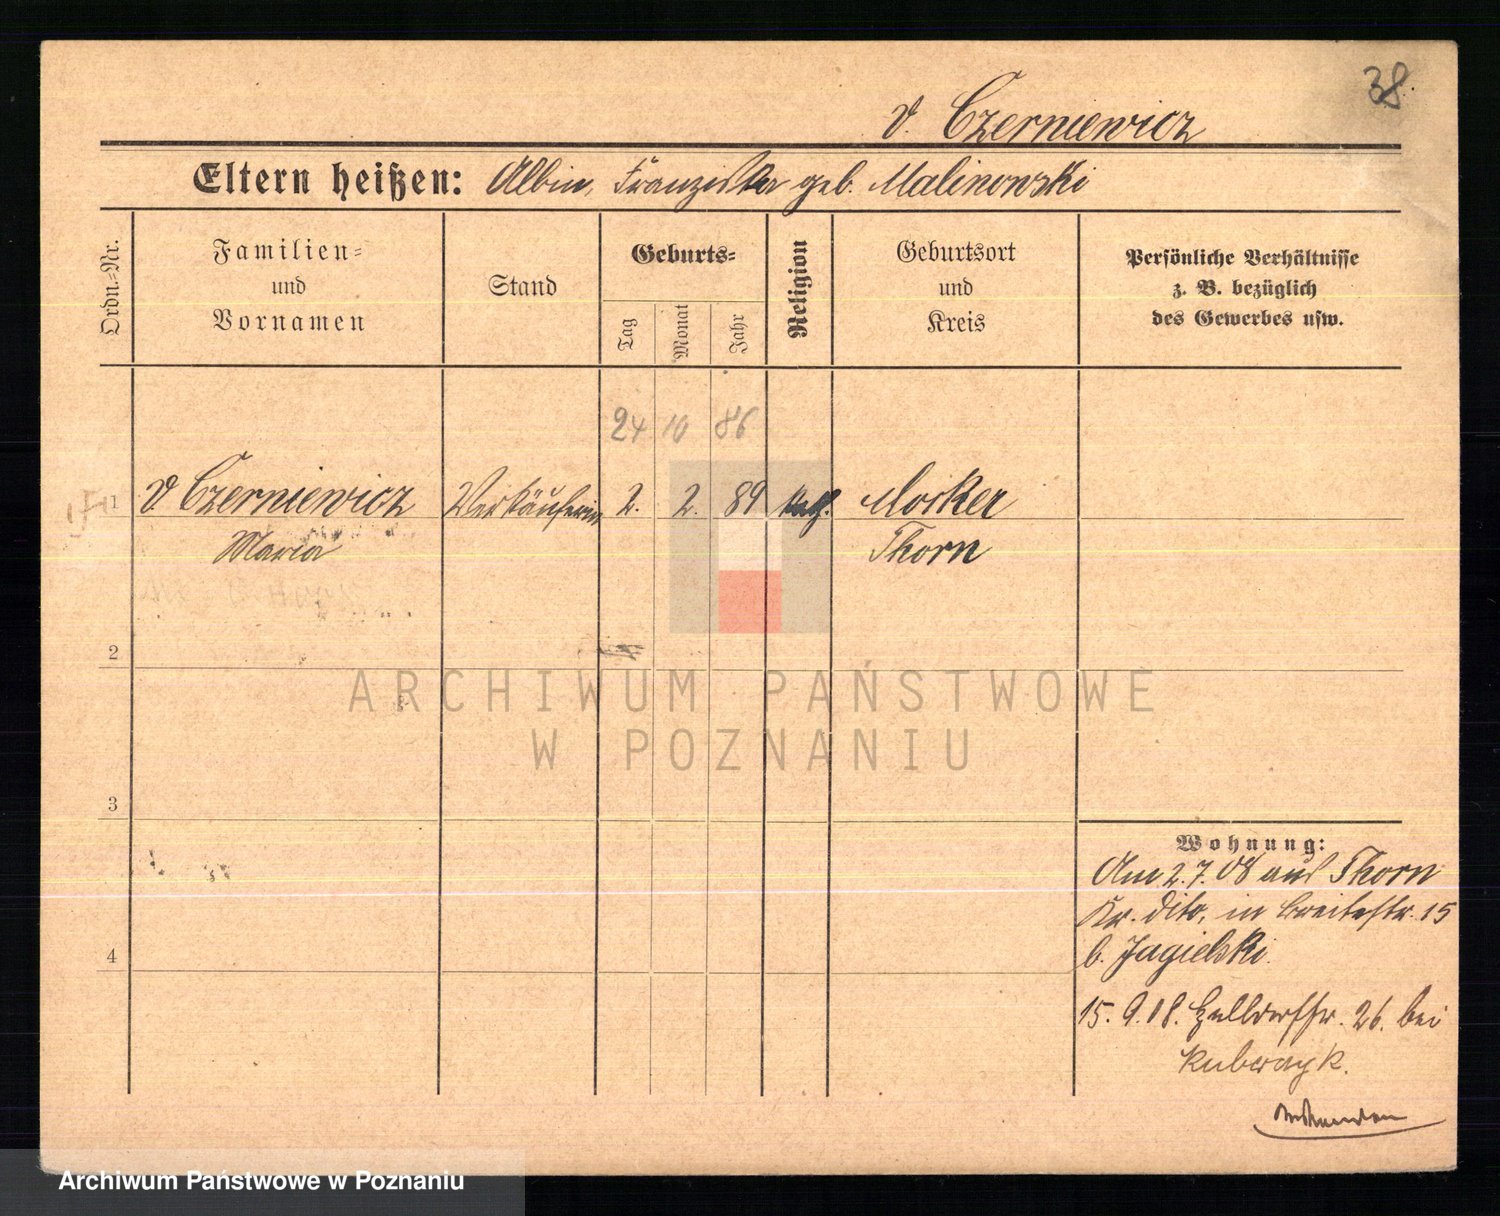 38
v. Czerniewicz
Eltern heißen: Albin, Franziska geb. Malinowski
Ordn.-Nr.
Familien-
und
Vornamen
Stand
Geburts-
Tag
Monat
Jahr
Religion
Geburtsort
und
Kreis
Persönliche Verhältnisse
z. B. bezüglich
des Gewerbes usw.
24 10 86
1 v Czerniewicz Verkäuferin 2. 2. 89 kath. Mocker
Maria Thorn
2
3
4
ARCHIWUM PAŃSTWOWE
W POZNANIU
Wohnung:
Am 2.7.08 aus Thorn
Kr. dito, in Breitestr. 15
b. Jagielski.
15. 9. 18. 26. bei
Kubczyk.
Archiwum Państwowe w Poznaniu